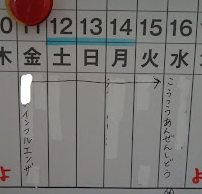 10 11 12 13 14 15 16
木 金 土 日 月 火 水
インフルエンザ
こうつうあんぜんしどう